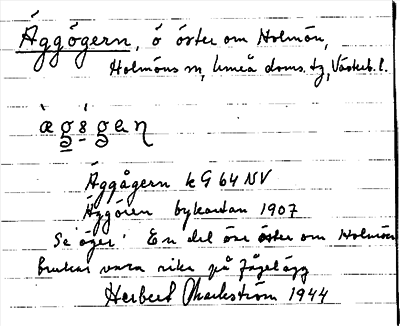 Äggögern, ö öster om Holmön,
Holmöns sn, Umeå doms. tg, Västerb. l.
Äggågern kG 64 NV
Äggören bykartan 1907
Se 'öger'. En del öar öster om Holmön
brukar vara rika på fågelägg
Herbert Markström 1944